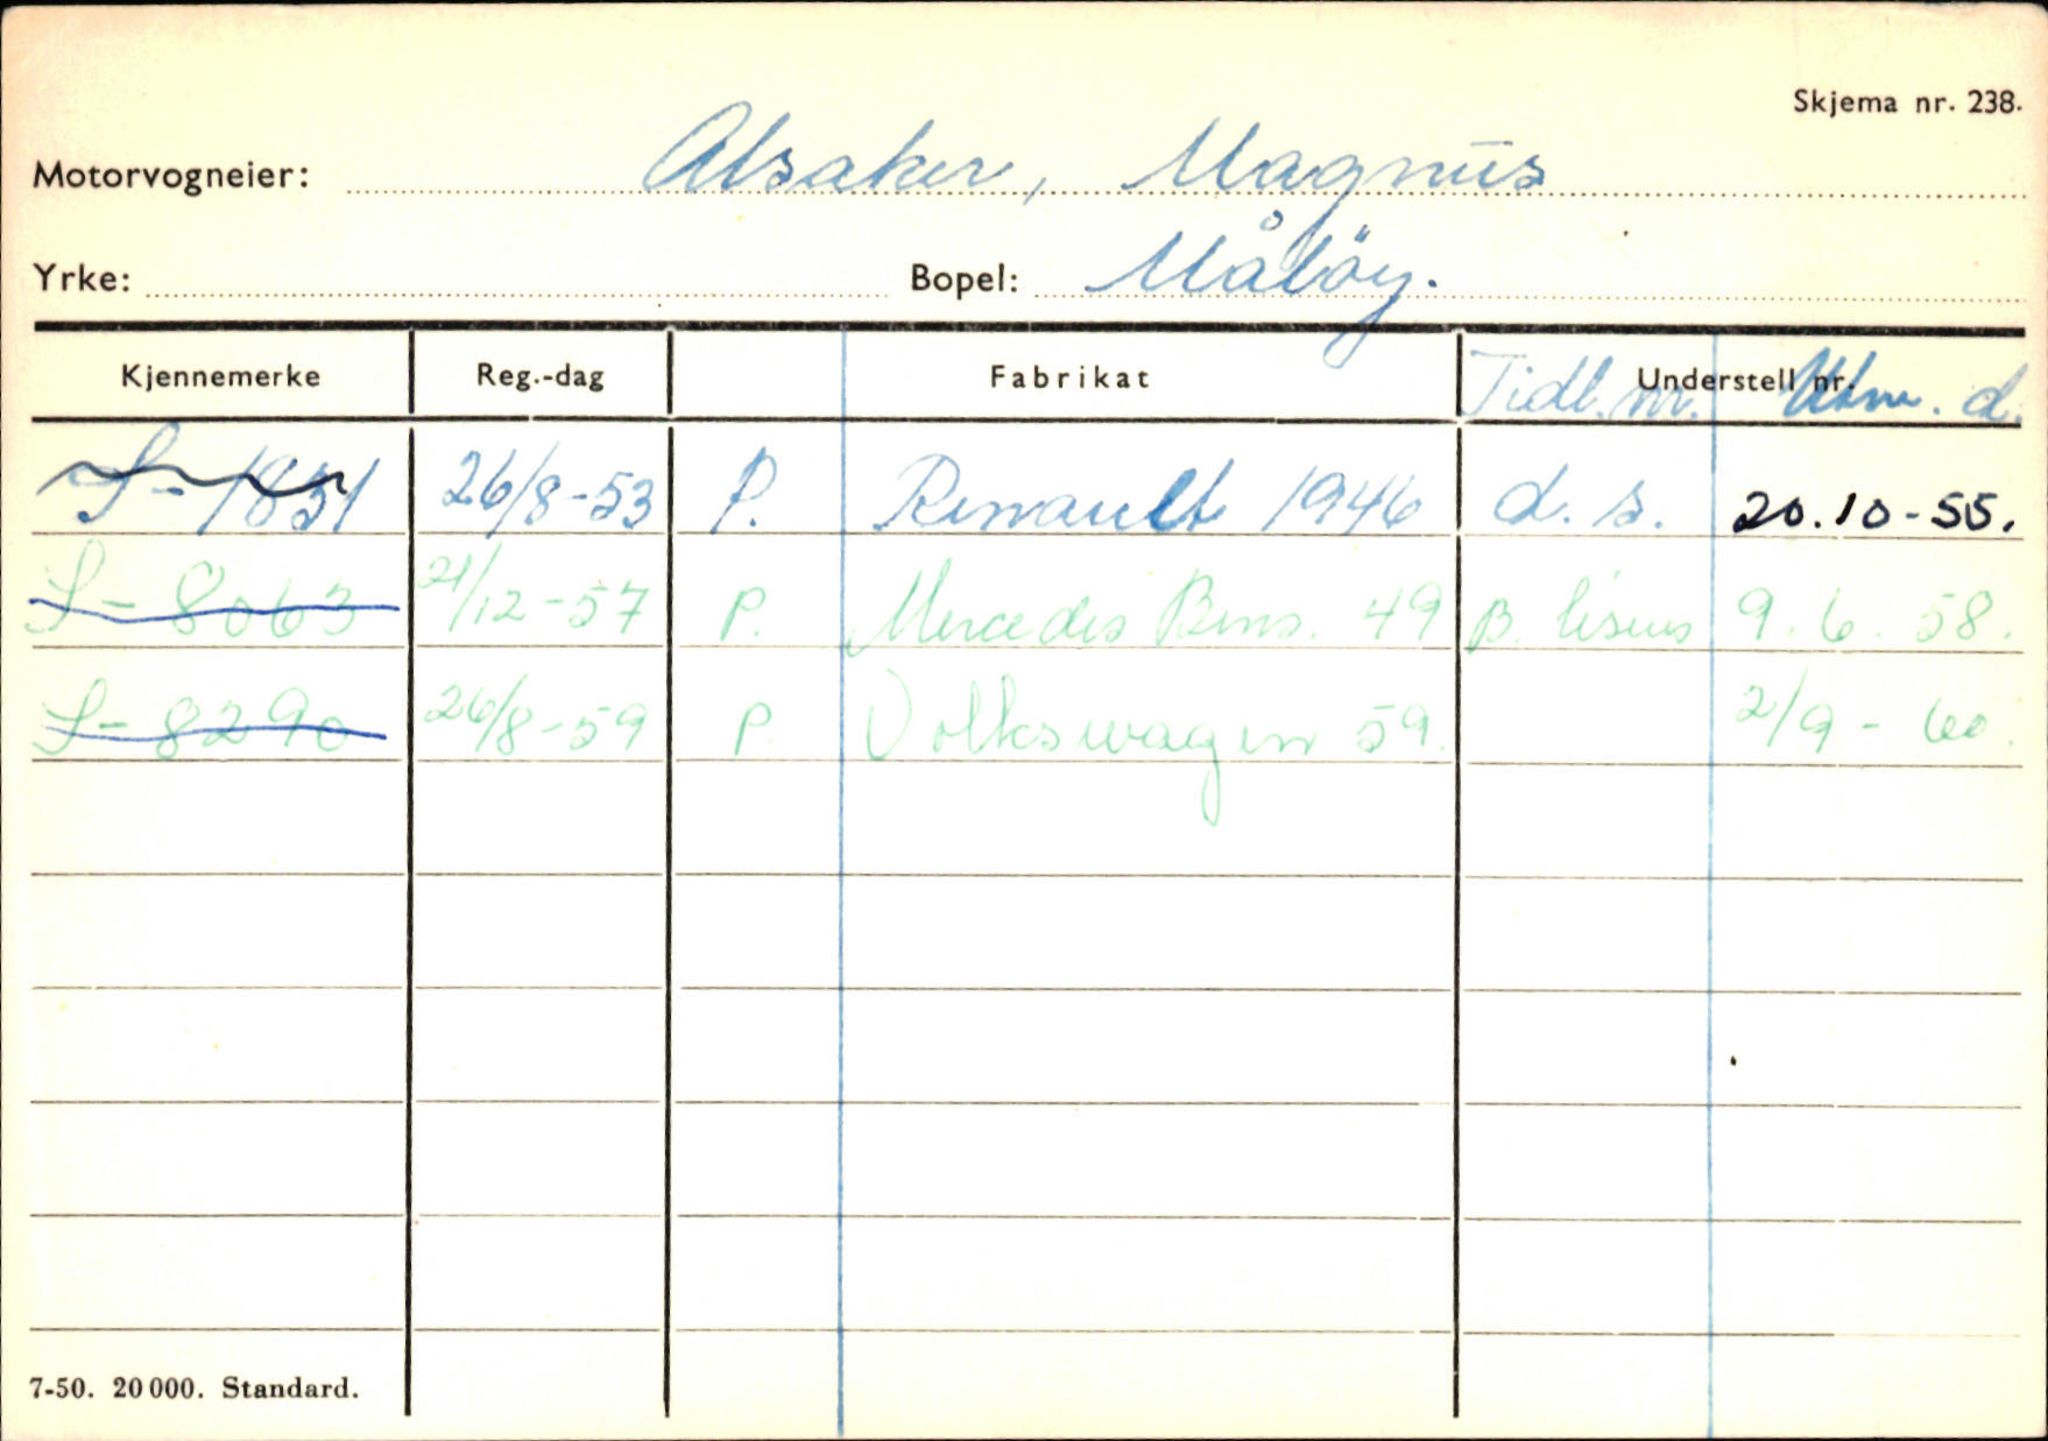 Skjema nr. 238.
Motorvogneier: Alsaker, Magnus
Yrke: Bopel: Målöy.
Kjennemerke Reg.-dag Fabrikat Understell nr. Tidl. nr. Utm. d.
S-1831 26/8-53 P. Renault 1946 d. s. 20.10-55.
S-8063 21/12-57 P. Mercedes Bens. 49 B. lisens 9.6.58.
S-8290 26/8-59 P Volkswagen 59. 2/9-60.
7-50. 20 000. Standard.